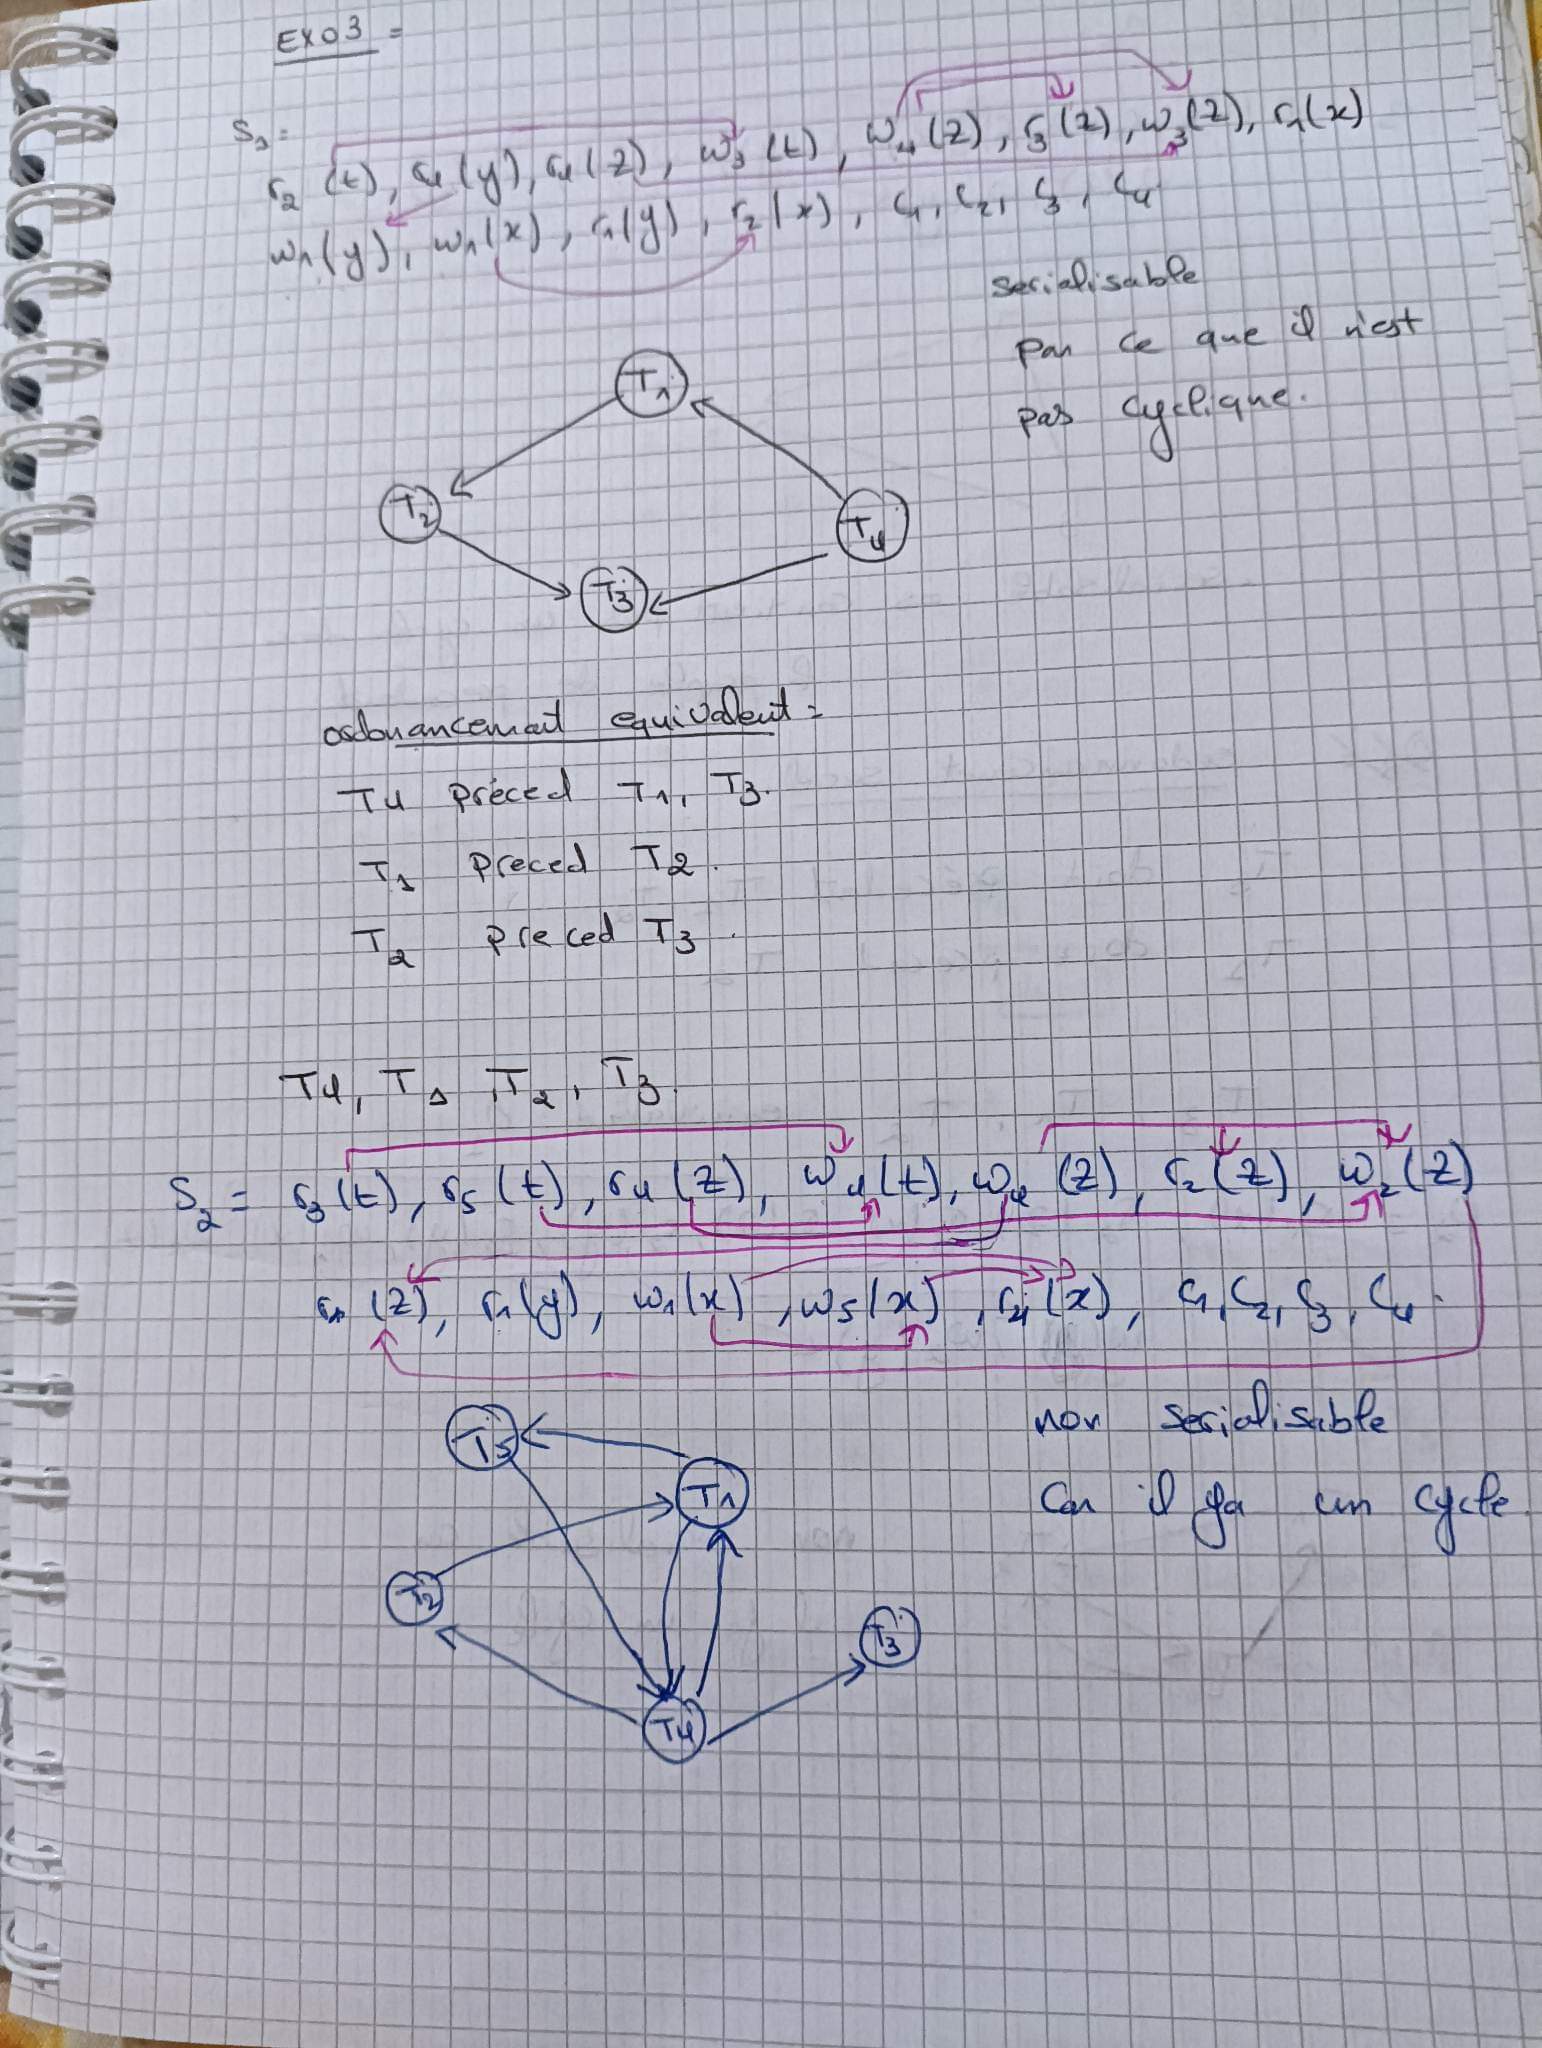 EXO3 =
S₁ =
r₂(t), r₄(y), r₄(z), w₃(t), w₄(z), r₃(z), w₃(z), r₁(x)
w₁(y), w₁(x), r₁(y), r₂(x), c₁, c₂, c₃, c₄
serialisable
par ce que il n'est
pas cyclique.
T₁
T₂
T₄
T₃
ordonancement equivalent =
T4 préced T₁, T3.
T₁ preced T₂.
T₂ preced T₃.
T4, T₁, T₂, T₃.
S₂ = r₃(t), r₅(t), r₄(z), w₄(t), w₄(z), r₂(z), w₂(z)
r₁(z), r₁(y), w₁(x), w₅(x), r₄(x), c₁, c₂, c₃, c₄.
non serialisable
Car il ya un cycle.
T5
T₁
T₂
T₃
T4